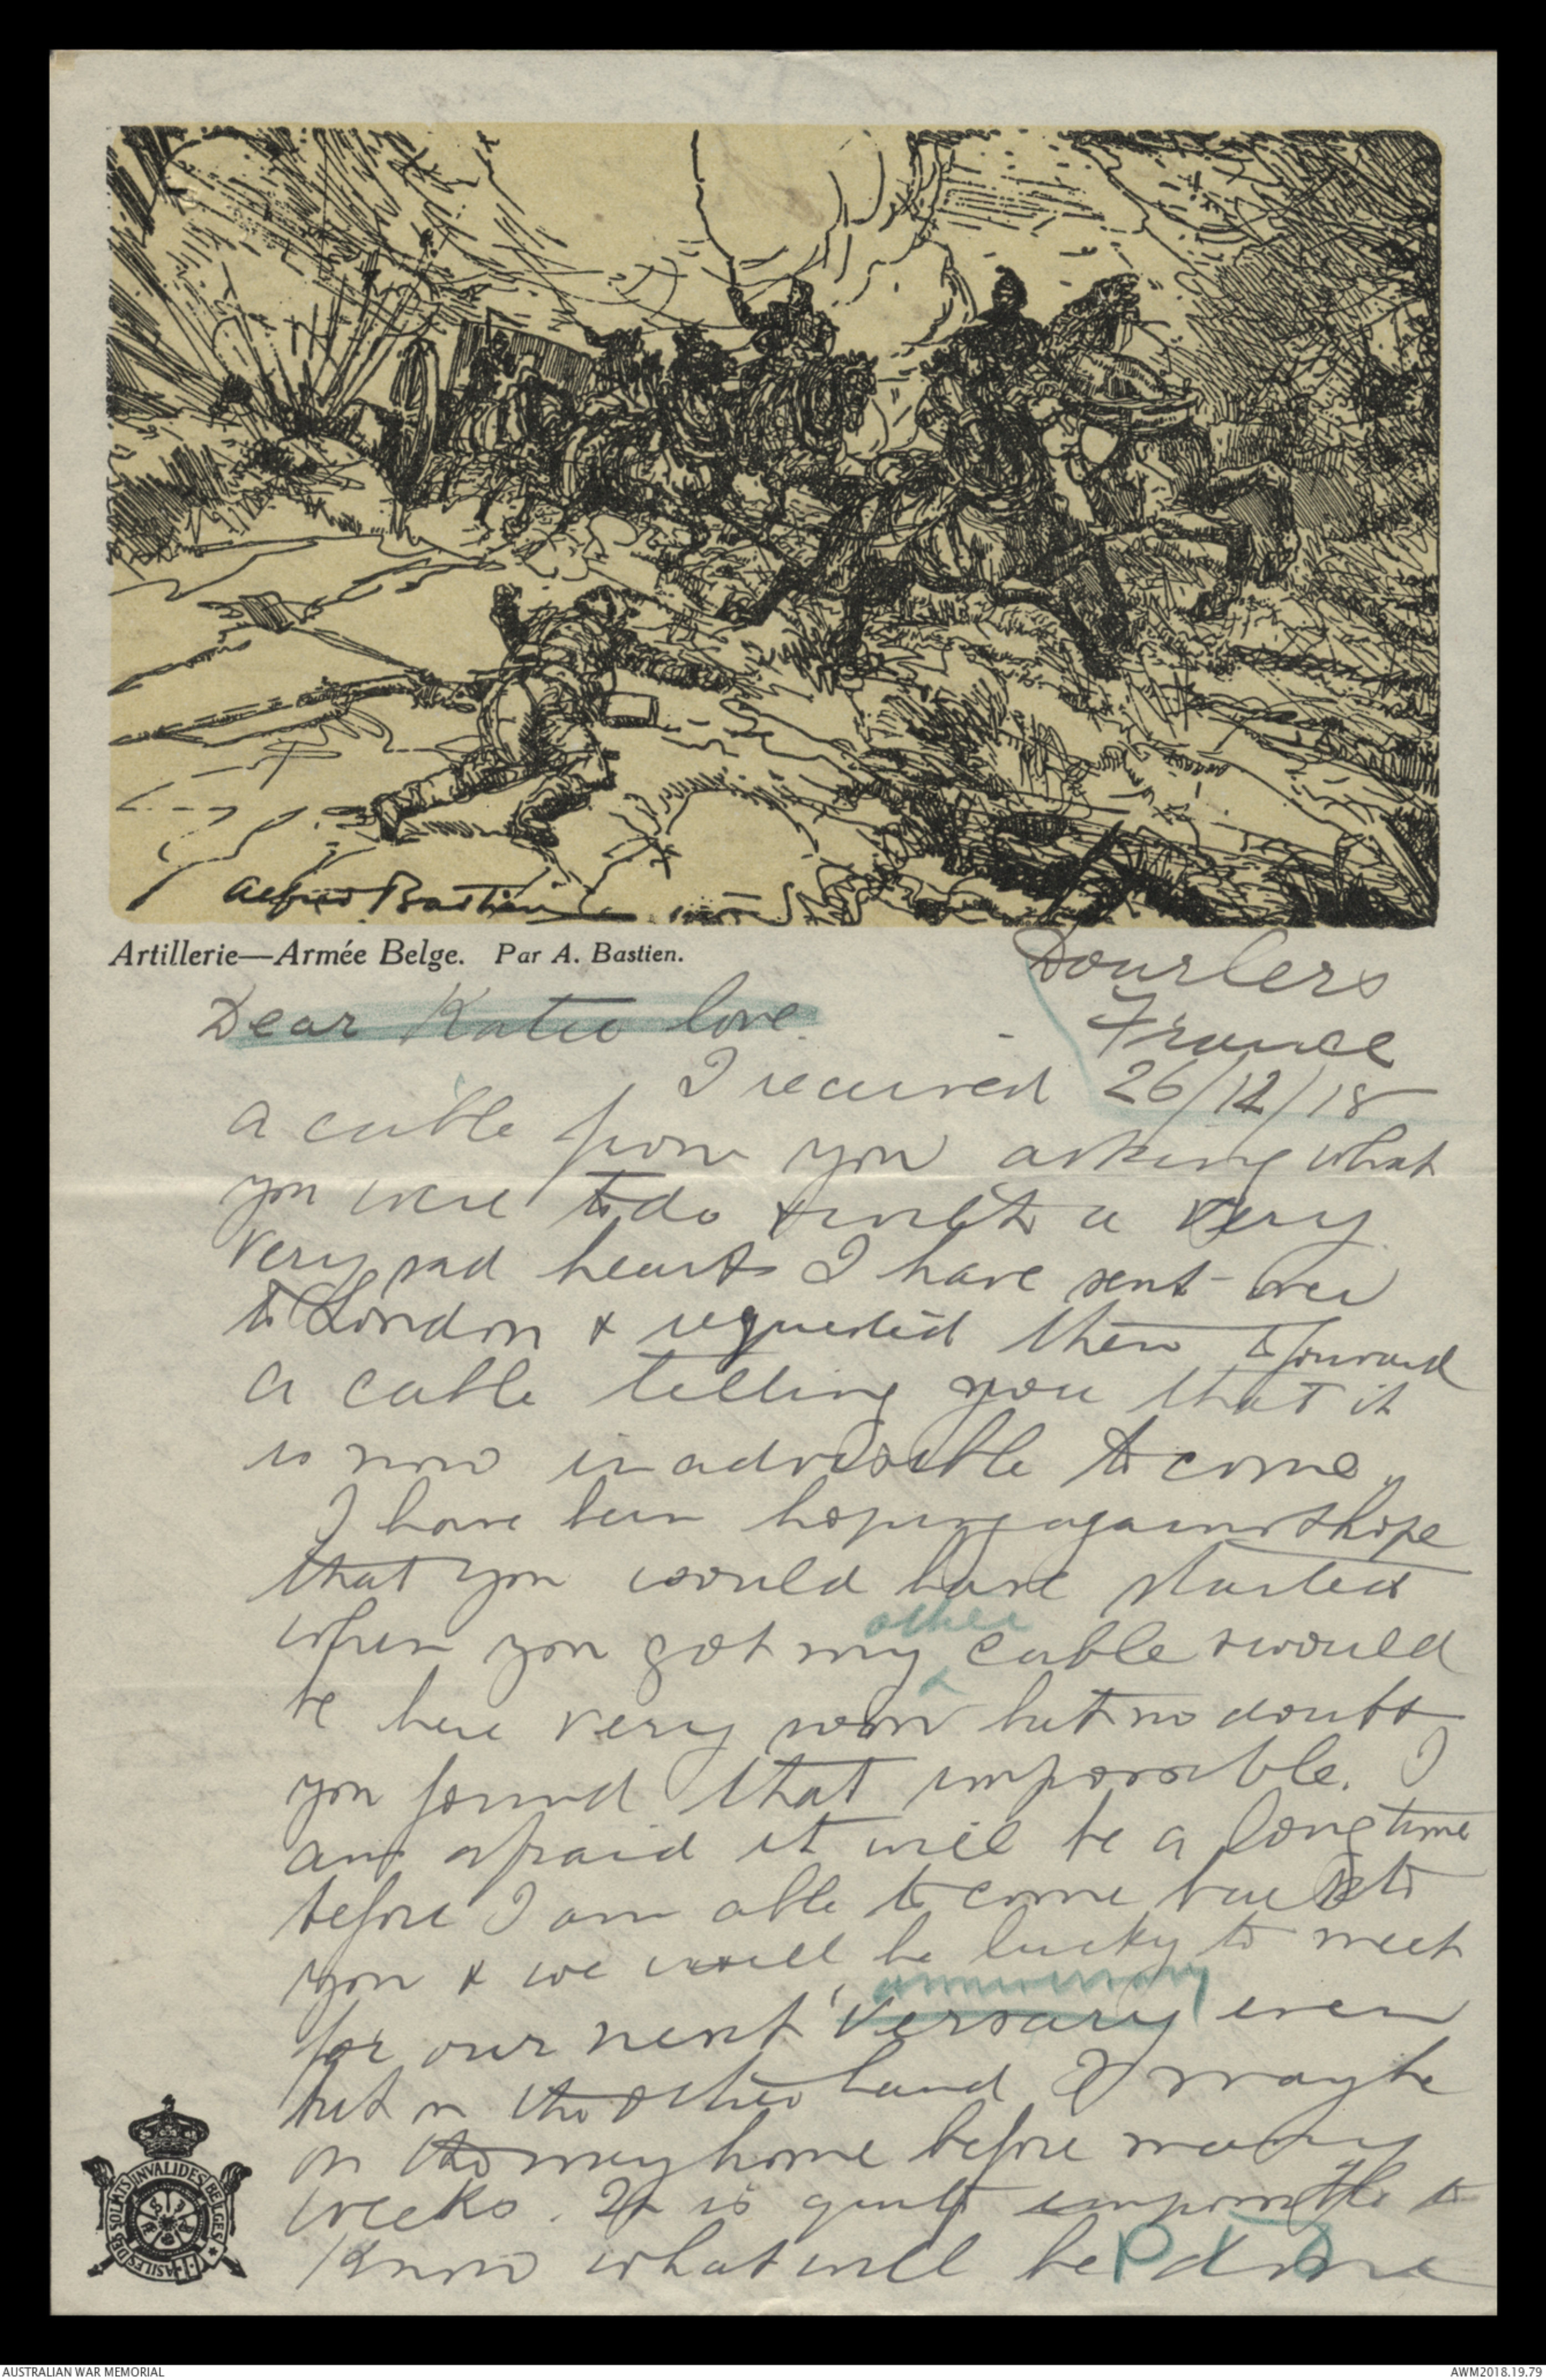 Alfred Bastien
Artillerie—Armée Belge. Par A. Bastien.
Dourlers
France
26/12/18
Dear Katie love.
I received
a cable from you asking what
you were to do & with a very
very sad heart I have sent over
to London & requested them to forward
a cable telling you that it
is now inadvisable to come.
I have been hoping against hope
that you would have started
when you got my other cable & would
be here very soon but no doubt
you found that impossible. I
am afraid it will be a long time
before I am able to come back to
you & we will be lucky to meet
anniversary
for our next 'versary even
but on the other hand I may be
on the way home before many
weeks. It is quite impossible to
know what will be done
PTO
ASILES DES SOLDATS INVALIDES BELGES
AUSTRALIAN WAR MEMORIAL
AWM2018.19.79